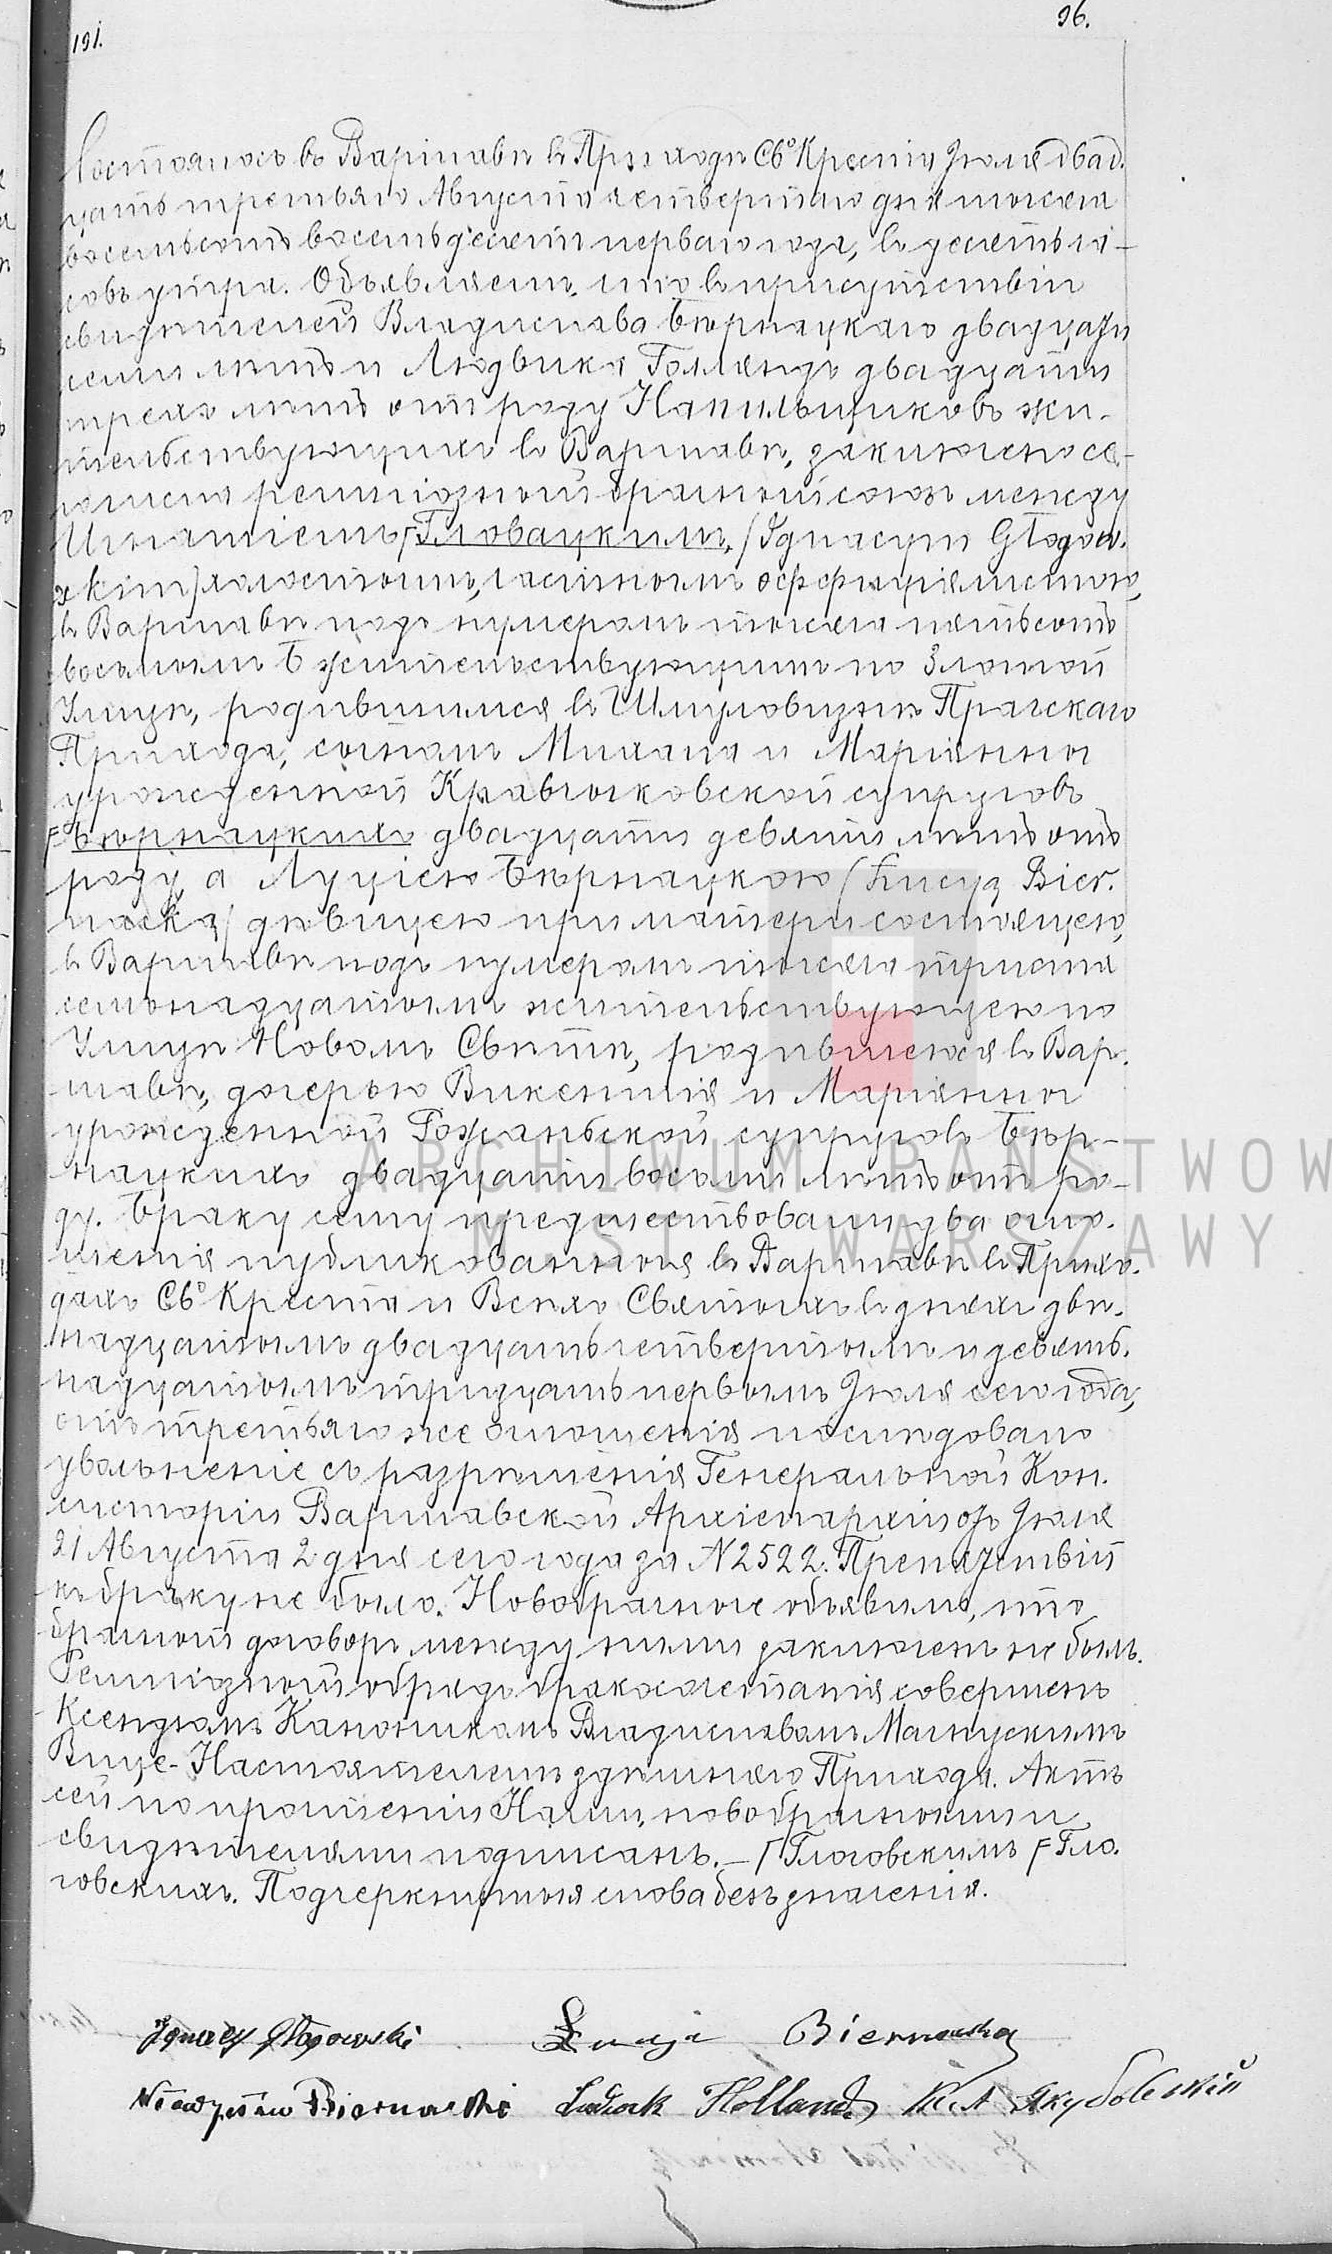 96.
191.
Состоялось въ Варшавѣ въ Приходѣ Св° Креста Іюля двад.
цать третьяго Августа четвертаго дня тысяча
восемьсотъ восемьдесятъ перваго года, въ десять ча-
совъ утра. Объявляемъ, что въ присутствіи
свидѣтелей Владислава Бѣрнацкаго двадцати
семи лѣтъ и Людвика Голляндъ двадцати
трехъ лѣтъ отъ роду Напильщиковъ жи-
тельствующихъ въ Варшавѣ, заключенъ се-
годня религіозный брачный союзъ между
Игнатіемъ /Гловацкимъ, /Ignacym Głogow.
skim/ холостымъ, частнымъ оффиціялистою,
въ Варшавѣ подъ нумеромъ тысяча пятьсотъ
восьмымъ Б жительствующимъ по Злотой
Улицѣ, родившимся въ Шмуловизнѣ Прагскаго
Прихода, сыномъ Михала и Маріянны
урожденной Кравчиковской супруговъ
/Бѣрнацкихъ двадцати девяти лѣтъ отъ
роду, а Луціею Бѣрнацкою /Łucyą Bier.
nacką/ дѣвицею при матери состоящею,
въ Варшавѣ подъ нумеромъ тысяча триста
семьнадцатымъ жительствующею по
Улицѣ Новомъ Свѣтѣ, родившеюся въ Вар.
шавѣ, дочерью Викентія и Маріянны
урожденной Рожаньской супруговъ Бѣр-
нацкихъ двадцати восьми лѣтъ отъ ро-
ду. Браку сему предшествовали два огло.
шенія публикованныя въ Варшавѣ въ Прихо.
дахъ Св° Креста и Всѣхъ Святыхъ въ дняхъ двѣ.
надцатомъ двадцать четвертымъ и девять.
надцатомъ тридцать первымъ Іюля сего года,
отъ третьяго же оглошенія послѣдовало
увольненіе съ разрѣшенія Генеральной Кон.
систоріи Варшавской Архіепархіи отъ Іюля
21 Августа 2 дня сего года за N 2522. Препятствій
къ браку не было. Новобрачные объявили, что
брачный договоръ между ними заключенъ не былъ.
Религіозный обрядъ бракосочетанія совершенъ
Ксендзомъ Каноникомъ Владиславомъ
Вице-Настоятелемъ здѣшняго Прихода. Актъ
сей по прочтеніи Нами, новобрачными и
свидѣтелями подписанъ. — /Глоговскимъ /Гло.
говскихъ. Подчеркнутыя слова безъ значенія.
Ignacy Głogowski Łucyja Biernacka
Władysław Biernacki Ludwik Holland K. A Якубовскій
ARCHIWUM PAŃSTWOW
M.ST. WARSZAWY